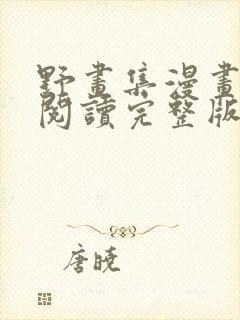 野畫集漫畫
閱讀完整版
唐曉